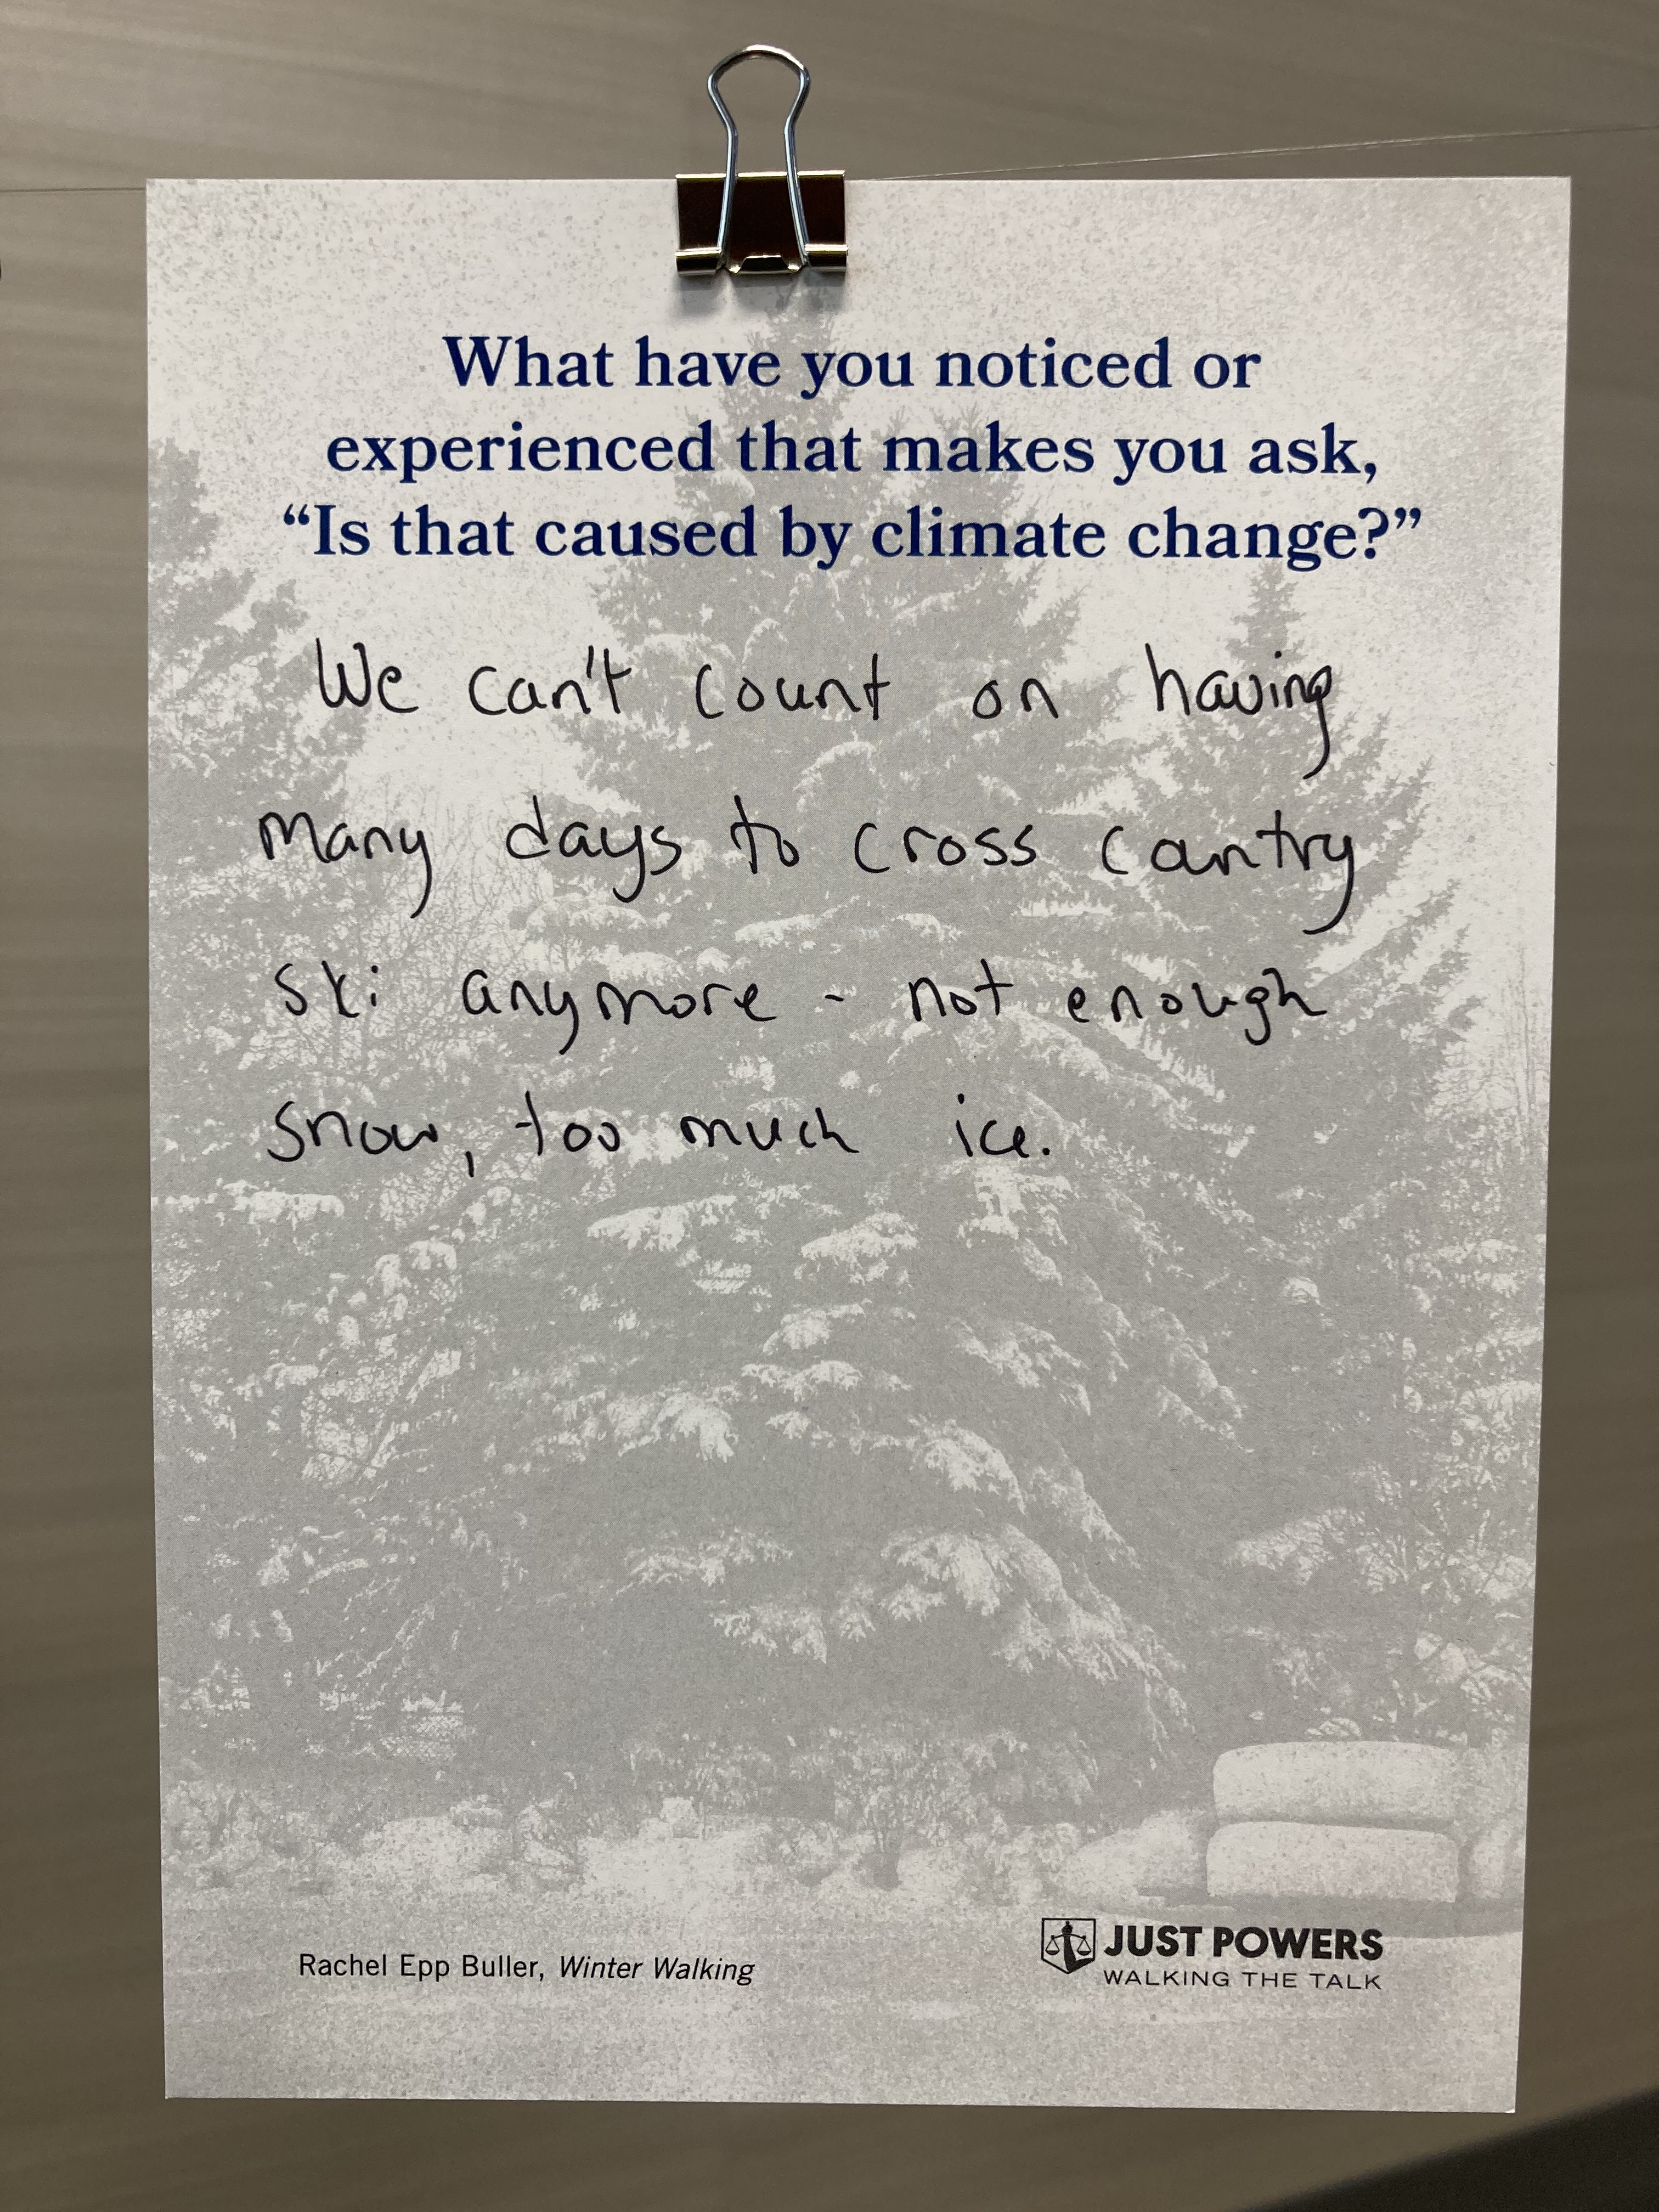 What have you noticed or
experienced that makes you ask,
“Is that caused by climate change?”
We can't count on having
many days to cross country
ski anymore - not enough
snow, too much ice.
Rachel Epp Buller, Winter Walking
JUST POWERS
WALKING THE TALK